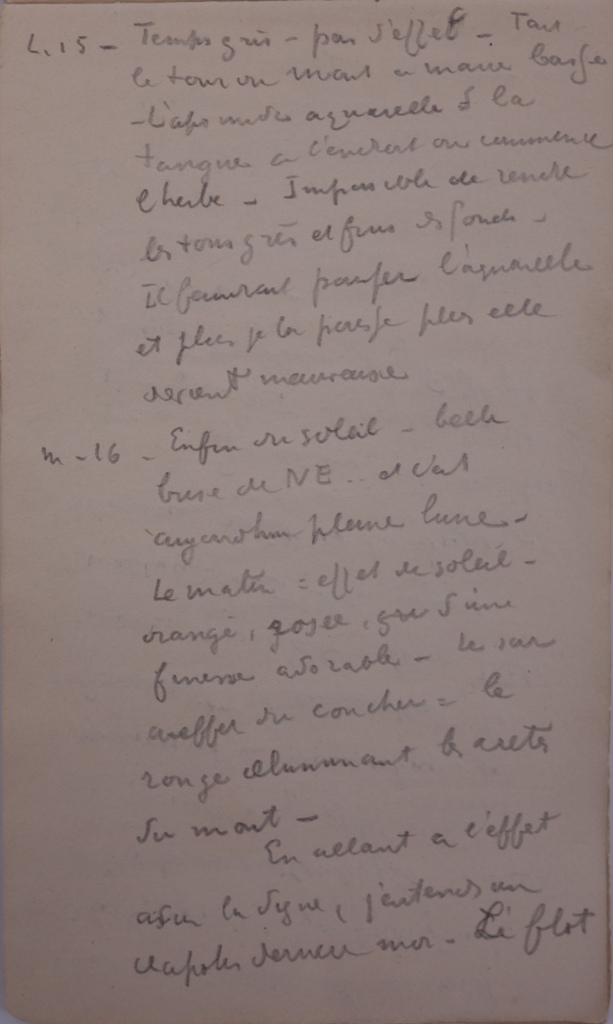 L. 15 - Temps gris - pas d'effet - Tant
le tour du mont a maree basse
- L'apres midi aquarelle à la
tangue a l'endroit ou commence
l'herbe - Impossible de rendre
les tons gris et fins des fonds -
Il faudrait pousser l'aquarelle
et plus je la pousse plus elle
devient mauvaise
M - 16 - Enfin du soleil - belle
brise de NE .. et c'est
aujourd'hui pleine lune -
Le matin = effet de soleil -
orangé, rosee, gris d'une
finesse adorable - Le soir
effet du coucher = le
rouge illuminant les aretes
du mont -
En allant a l'effet
sur la digue, j'entends un
clapotis derriere moi - Le flot